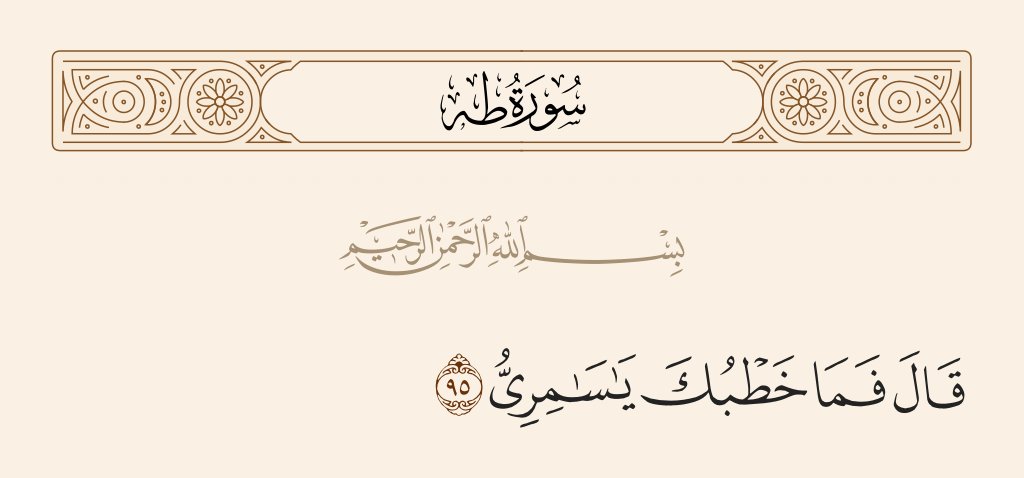 سُورَةُ طه
بِسْمِ ٱللَّهِ ٱلرَّحْمَٰنِ ٱلرَّحِيمِ
قَالَ فَمَا خَطْبُكَ يَٰسَٰمِرِىُّ ٩٥